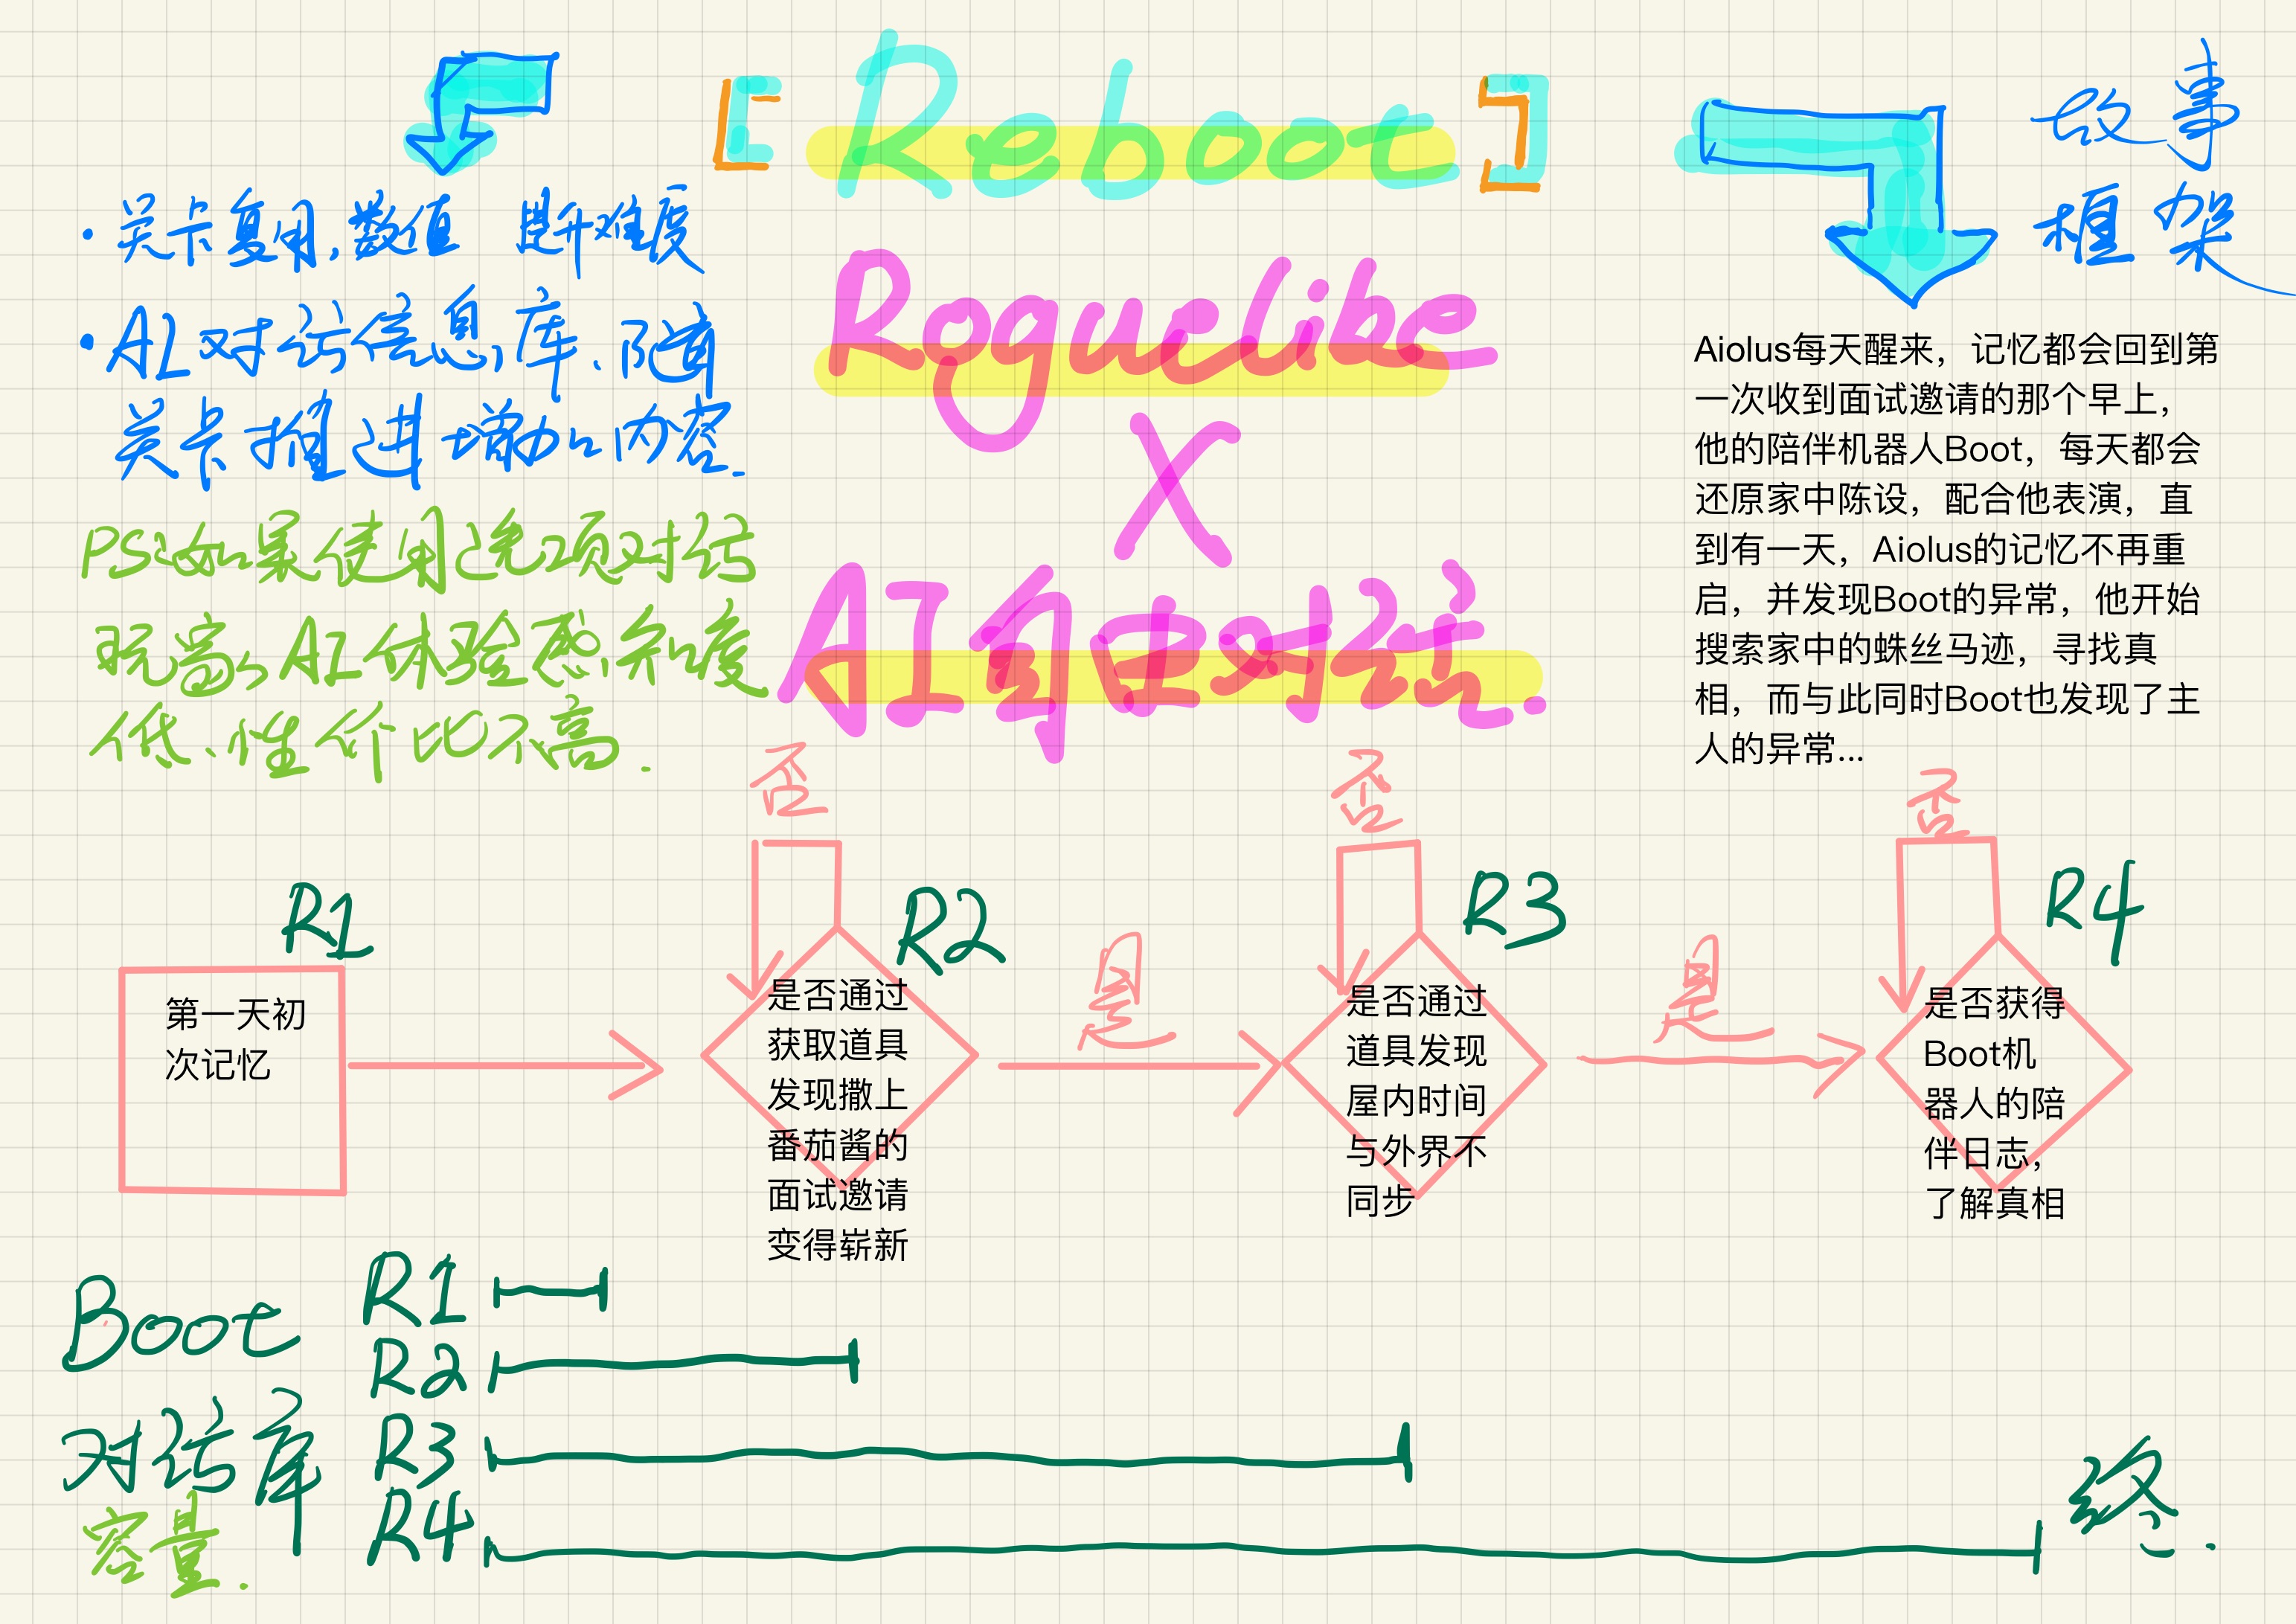 [Reboot]
Roguelike
X
AI自由对话.
·关卡复用,数值 提升难度
·AI对话信息库、随着
关卡推进增加内容.
PS:如果使用选项对话
玩家AI体验感知度
低、性价比不高.
故事
框架
Aiolus每天醒来，记忆都会回到第
一次收到面试邀请的那个早上，
他的陪伴机器人Boot，每天都会
还原家中陈设，配合他表演，直
到有一天，Aiolus的记忆不再重
启，并发现Boot的异常，他开始
搜索家中的蛛丝马迹，寻找真
相，而与此同时Boot也发现了主
人的异常...
R1
第一天初
次记忆
否
R2
是否通过
获取道具
发现撒上
番茄酱的
面试邀请
变得崭新
是
否
R3
是否通过
道具发现
屋内时间
与外界不
同步
是
否
R4
是否获得
Boot机
器人的陪
伴日志，
了解真相
Boot
对话库
容量.
R1
R2
R3
R4
终.